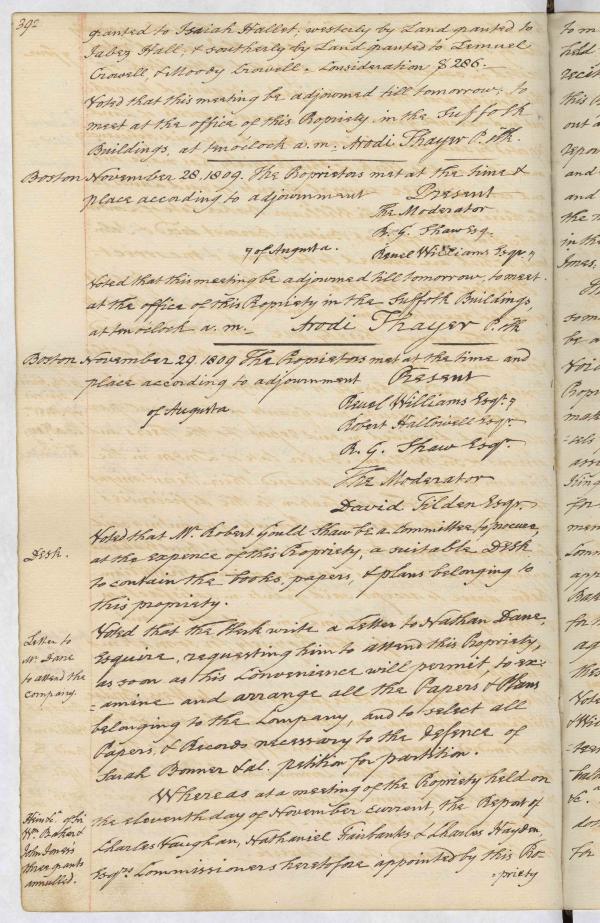 392
granted to Isaiah Hallet; westerly by Land granted to
Jabez Hall; & southerly by Land granted to Lemuel
Crowell, & Moody Crowell. Consideration $286.—
Voted that this meeting be adjourned till tomorrow, to
meet at the office of this Propriety, in the Suffolk
Buildings, at ten oclock a.m. Arodi Thayer P. Clk.
Boston November 28. 1809. The Proprietors met at the time &
place according to adjournment Present
The Moderator
R. G. Shaw Esq.
of Augusta. Reuel Williams Esqr.
Voted that this meeting be adjourned till tomorrow, to meet
at the office of this Propriety in the Suffolk Buildings,
at ten oclock a.m.— Arodi Thayer P. Clk
Boston November 29 1809 The Proprietors met at the time and
place according to adjournment Present
of Augusta Reuel Williams Esqr.
Robert Hallowell Esqr.
R. G. Shaw Esqr.
The Moderator
David Tilden Esqr.
Desk.
Voted that Mr. Robert Gould Shaw be a Committee to procure,
at the expence of this Propriety, a suitable Desk
to contain the books, papers, & plans belonging to
this propriety.
Letter to
Mr. Dane
to attend the
Company.
Voted that the Clerk write a Letter to Nathan Dane,
Esquire, requesting him to attend this Propriety,
as soon as his Convenience will permit, to ex=
=amine and arrange all the Papers & Plans
belonging to the Company, and to select all
Papers, & Records necessary to the Defence of
Sarah Bonner & al. petition for partition.
Wm. Baker &
John Jones's
three grants
annulled.
Whereas at a meeting of the Propriety held on
the eleventh day of November current, the Report of
Charles Vaughan, Nathaniel Fairbanks & Charles Hayden
Esqrs. Commissioners heretofore appointed by this Pro=
=priety